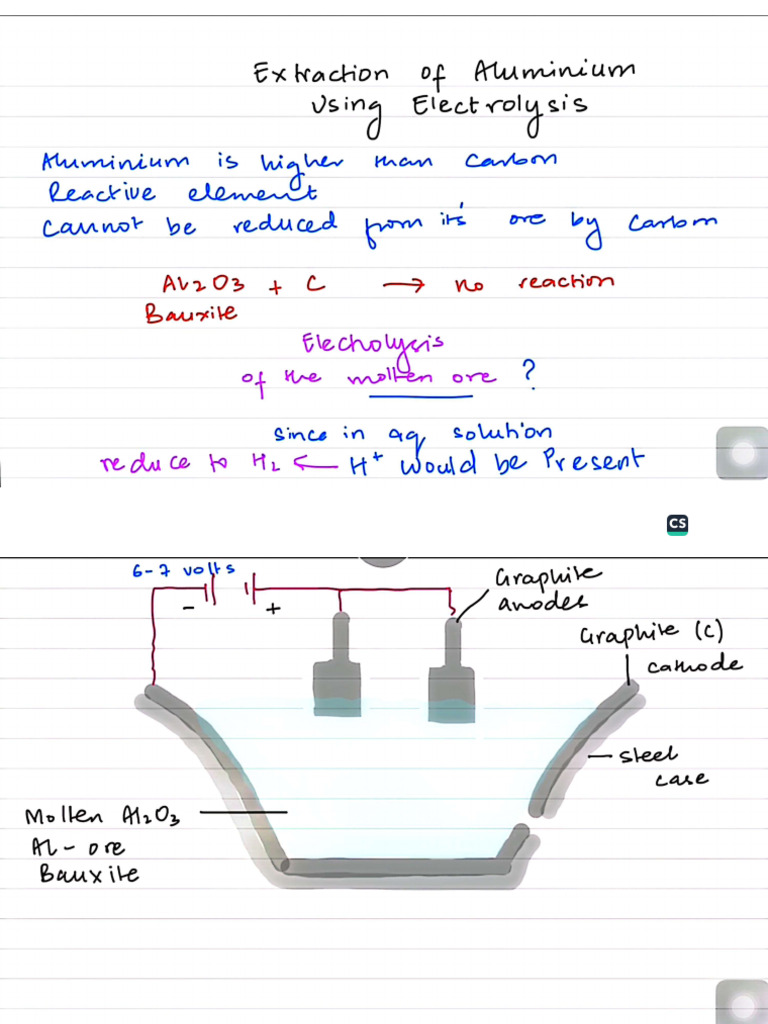 Extraction of Aluminium
Using Electrolysis
Aluminium is higher than Carbon
Reactive element
Cannot be reduced from it's ore by Carbon
Al2O3 + C → no reaction
Bauxite
Electrolysis
of the molten ore ?
since in aq solution
reduce to H2 ← H+ would be Present
CS
6-7 volts
- +
Graphite
anodes
Graphite (C)
cathode
steel
case
Molten Al2O3
Al - ore
Bauxite